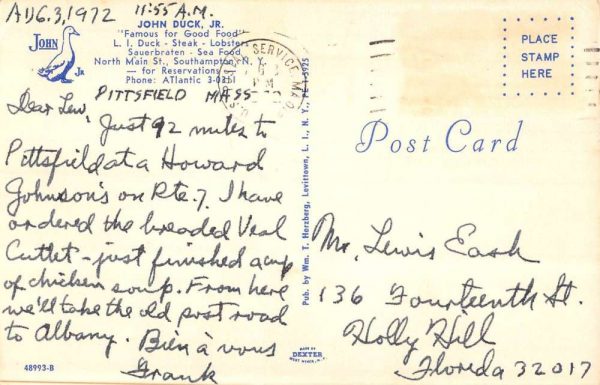 AUG. 3, 1972 11:55 A.M.
JOHN DUCK, JR.
"Famous for Good Food"
L. I. Duck - Steak - Lobsters
Sauerbraten - Sea Food
North Main St., Southampton, N. Y.
— for Reservations —
Phone: ATlantic 3-0351
JOHN
JR
PITTSFIELD MASS
Dear Lew,
Just 92 miles to
Pittsfield at a Howard
Johnson's on Rte. 7. I have
ordered the breaded Veal
Cutlet - just finished a cup
of chicken soup. From here
we'll take the old post road
to Albany. Bien à vous
Frank
48993-B
SERVICE
PM
Pub. by Wm. T. Herzberg, Levittown, L. I., N. Y., PE 1-5925
MADE BY
DEXTER
WEST NYACK, N.Y.
PLACE
STAMP
HERE
Post Card
Mr. Lewis Eash
136 Fourteenth St.
Holly Hill
Florida 32017